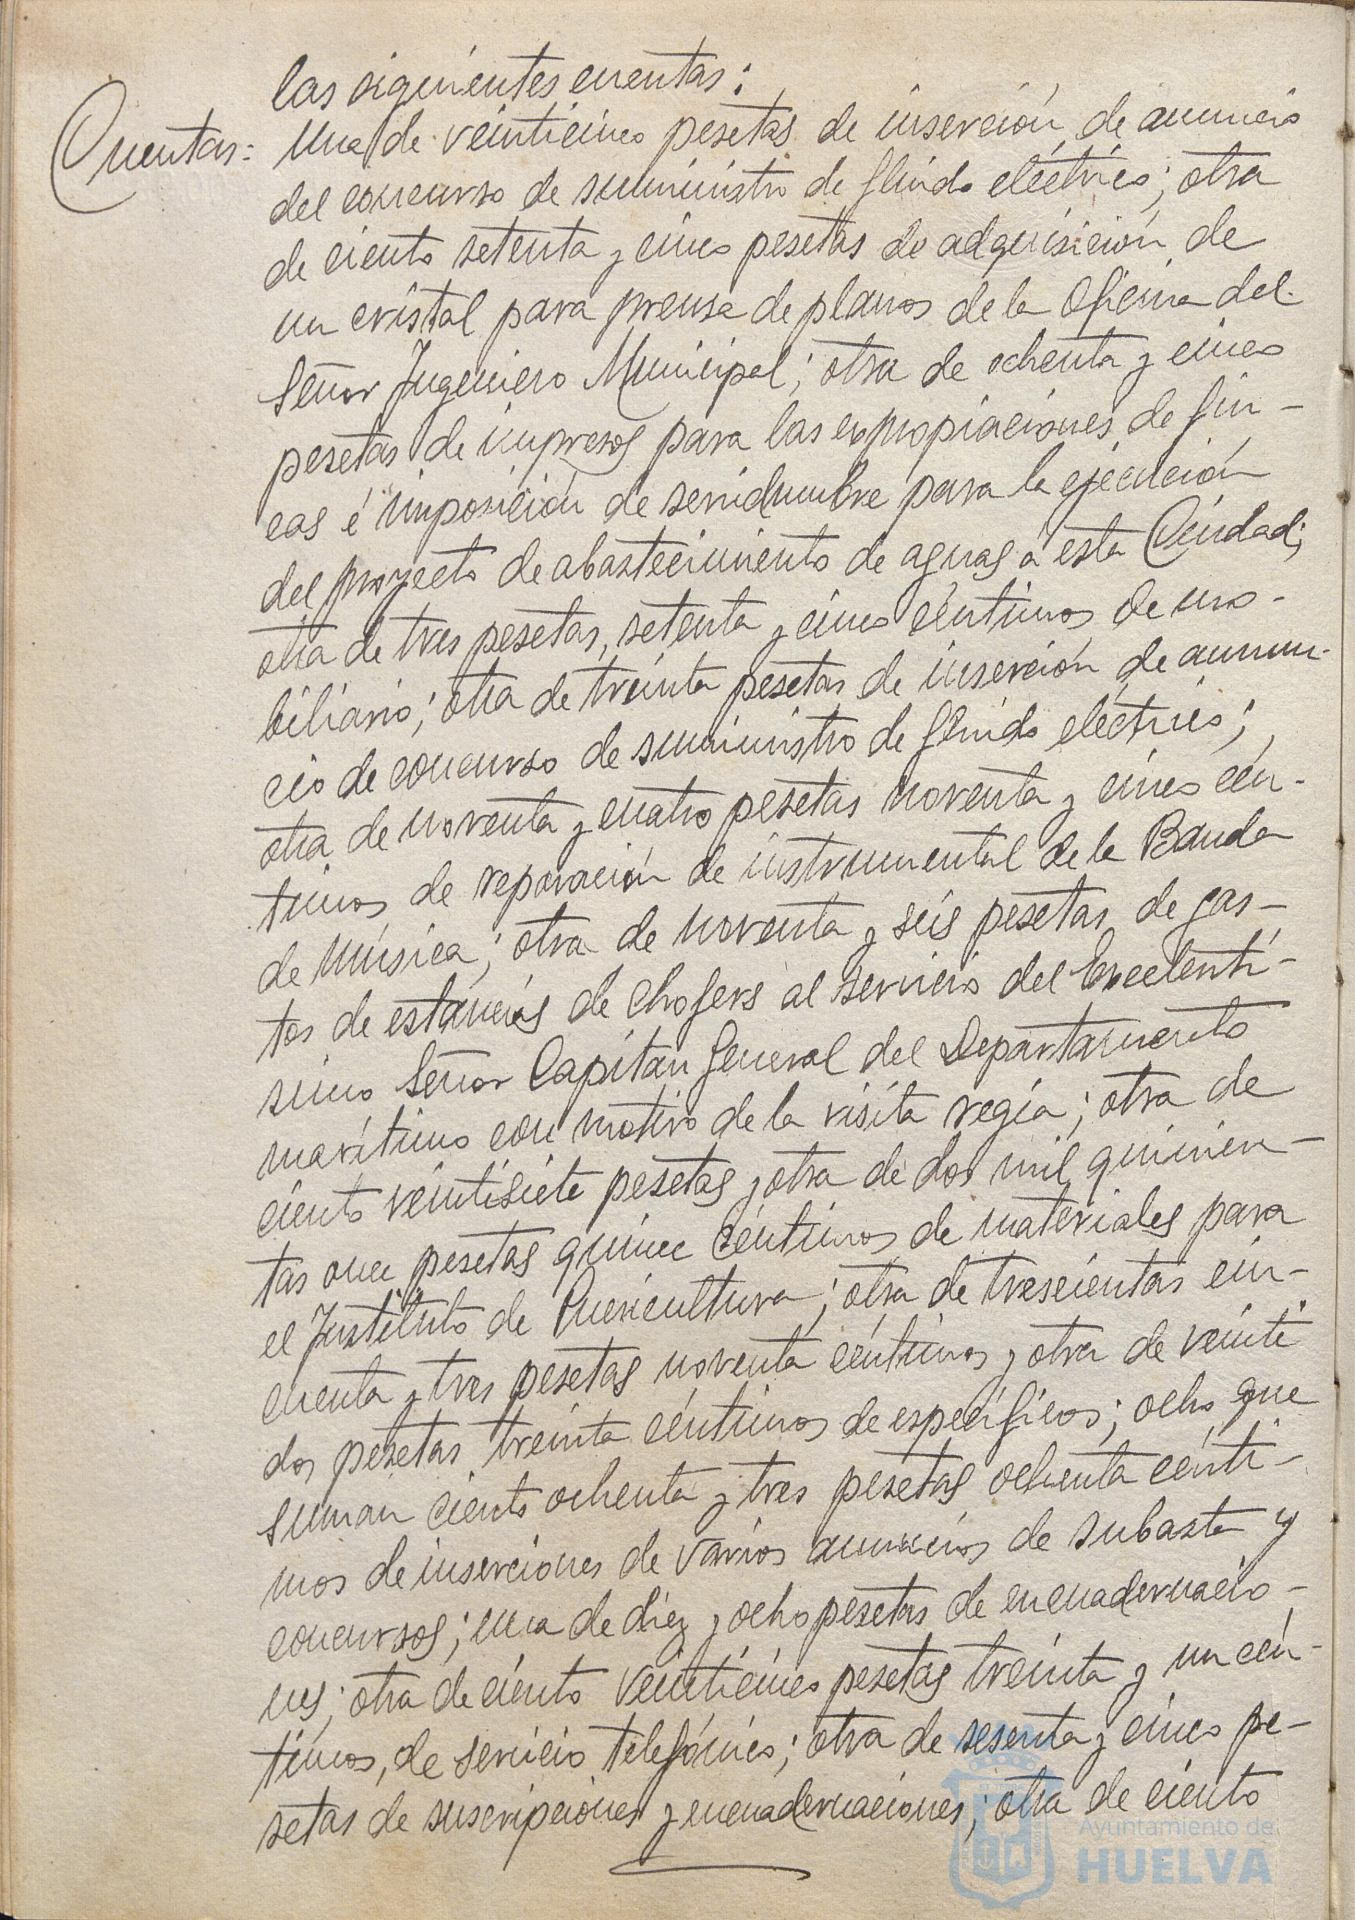 las siguientes cuentas:
Cuentas: Una de veinticinco pesetas de inserción de anuncio
del concurso de suministro de fluido eléctrico; otra
de ciento setenta y cinco pesetas de adquisición de
un cristal para prensa de planos de la Oficina del
Señor Ingeniero Municipal; otra de ochenta y cinco
pesetas de impresos para las expropiaciones de fin-
cas é imposición de servidumbre para la ejecución
del proyecto de abastecimiento de aguas a esta Ciudad;
otra de tres pesetas, setenta y cinco céntimos de mo-
biliario; otra de treinta pesetas de inserción de anun-
cio de concurso de suministro de fluido eléctrico;
otra de noventa y cuatro pesetas noventa y cinco cén-
timos de reparación de instrumental de la Banda
de Música; otra de noventa y seis pesetas de gas-
tos de estáncias de chofers al servicio del Excelentí-
simo Señor Capitán General del Departamento
marítimo con motivo de la visita regia; otra de
ciento veintisiete pesetas y otra de dos mil quinien-
tas once pesetas quince céntimos de materiales para
el Instituto de Puericultura; otra de trescientas cin-
cuenta y tres pesetas noventa céntimos y otra de veinti
dos pesetas treinta céntimos de específicos; ocho que
suman ciento ochenta y tres pesetas ochenta cénti-
mos de inserciones de varios anuncios de subasta y
concursos; una de diez y ocho pesetas de encuadernacio-
nes; otra de ciento veinticinco pesetas treinta y un cén-
timos, de servicio telefónico; otra de sesenta y cinco pe-
setas de suscripciones y encuadernaciones; otra de ciento
Ayuntamiento de
HUELVA